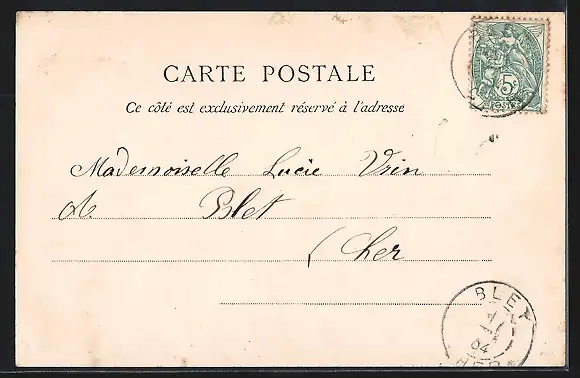 CARTE POSTALE
Ce côté est exclusivement réservé à l'adresse
Mademoiselle Lucie Vrin
à Blet
(Cher
5c
POSTES
BLET
04